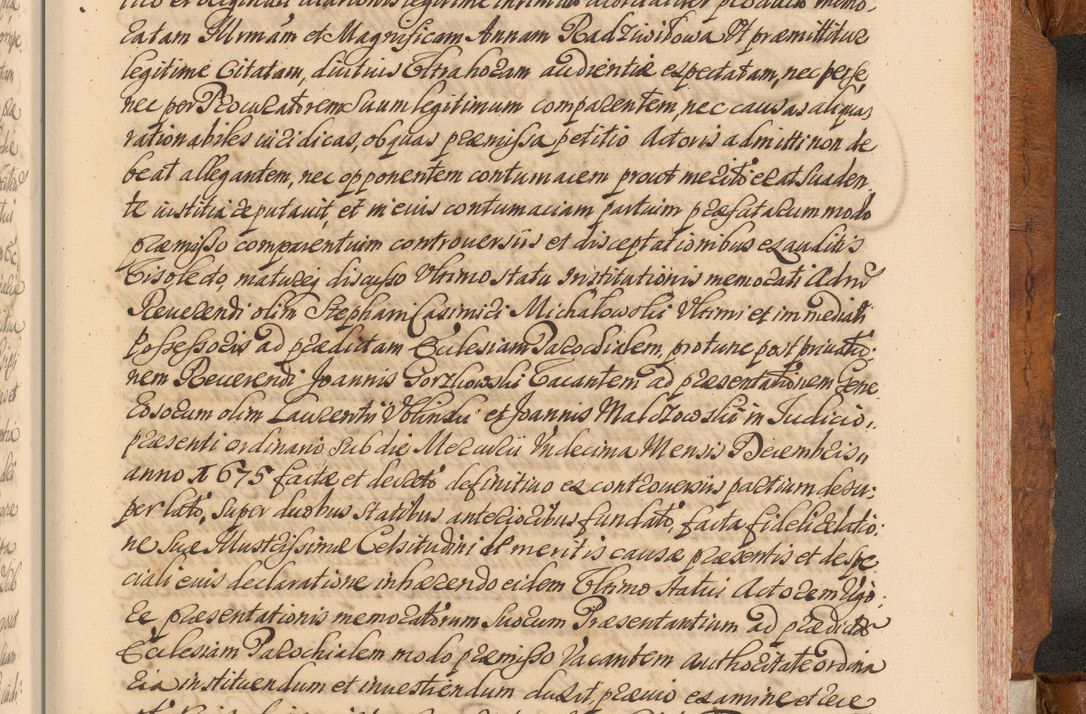 catam Illrmam et Magnificam Annam Radziwiłowa Vt præmittitur
legitime Citatam, diutius Ultra horam audientiæ expectatam, nec per se,
nec per Procuratorem suum legitimum comparentem, nec causas aliquas
rationabiles iuridicas, ob quas præmissa petitio Actoris admitti non de
beat allegantem, nec opponentem contumacem prout merito erat suaden
te iustitia reputavit, et in eius contumaciam partium præfatarum modo
præmisso comparentium controversiis et disceptationibus exauditis
matureq discusso Ultimo statu Institutionis memorati Adm
Reverendi olim Stephani Casimiri Michałowski Ultimi et immediati
possessoris ad prædictam Ecclesiam Parochialem, pro tunc post privatio:
nem Reverendi Joannis Gorzkowski Vacantem ad præsentationem Gene
rosorum olim Laurentii et Joannis Malczowski in Judicio,
præsenti ordinario sub die Mercurii Undecima Mensis Decembris,,
anno 1675 factæ et decreto definitivo ex controversiis partium desu:
per lato, super duobus statibus anterioribus fundato, facta fideli relatio:
ne suæ Illustrissimæ Celsitudini de meritis causæ præsentis et de spe
ciali eius declaratione inhærendo eidem Ultimo statui Actorem Vigo:
re præsentationis memoratorum suorum Præsentantium ad prædictam
Ecclesiam Parochialem modo præmisso Vacantem authoritate ordina
ria instituendum et investiendum duxit, prævio examine et cere